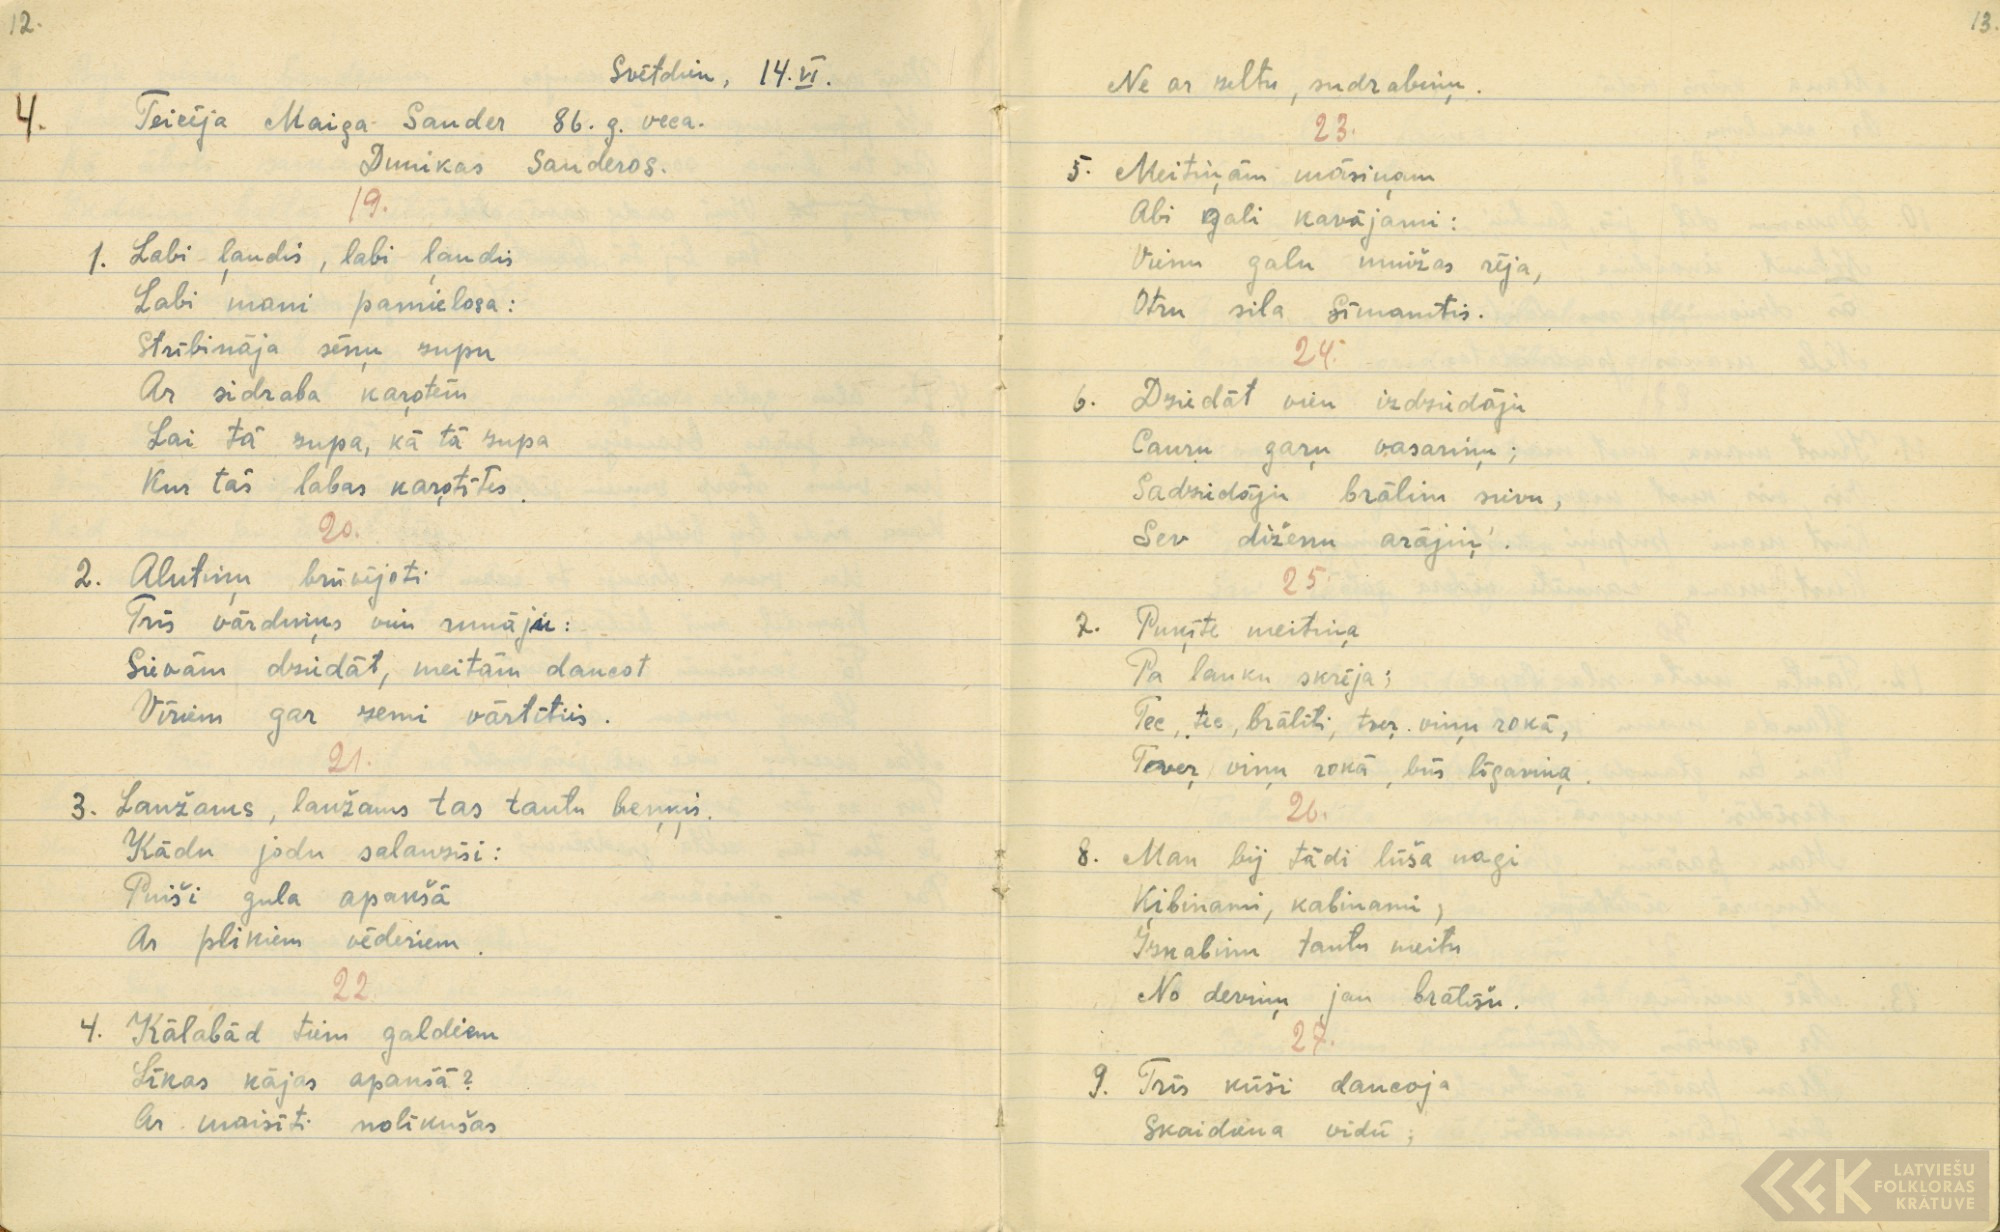 12.
Svētdien, 14. VI.
4. Teicēja Maiga Sander 86. g. veca.
Dunikas Sanderos.
19.
1. Labi ļaudis, labi ļaudis
Labi mani pamieloja:
Strēbināja sēņu zupu
Ar sidraba karotēm
Lai tā zupa, kā tā zupa
Kur tās labas karotītes.
20.
2. Alutiņu brūvējoti
Trīs vārdiņus vien runāju:
Sievām dziedāt, meitām dancot
Vīriem gar zemi vārtīties.
21.
3. Laužams, laužams tas tautu beņķis.
Kādu jodu salauzīsi:
Puiši gula apakšā
Ar plikiem vēderiem.
22
4. Kālabād tiem galdiem
Līkas kājas apakšā?
Ar maisīti nolikušas
13.
Ne ar zeltu, sudrabiņu.
23.
5. Meitiņām māsiņam
Abi gali kavājami:
Vienu galu muižas rēja,
Otru sila Sīmanītis.
24.
6. Dziedāt vien izdziedāju
Cauru garu vasariņu;
Sadziedāju brālim sievu,
Sev diženu arājiņ'.
25.
7. Puķīte meitiņa
Pa lauku skrēja;
Tec, tec, brālīti, tver viņu rokā,
Tver viņu rokā, būs līgaviņa.
26.
8. Man bij tādi lūša nagi
Ķibināmi, kabināmi;
Izkabinu tautu meitu
No deviņu jau brālīšu.
27.
9. Trīs kūši dancoja
Skaidiena vidū;
LATVIEŠU
FOLKLORAS
KRĀTUVE